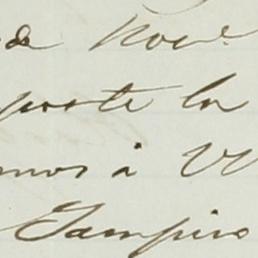 de Nov.e
porte la
mos à VV
Sampiro